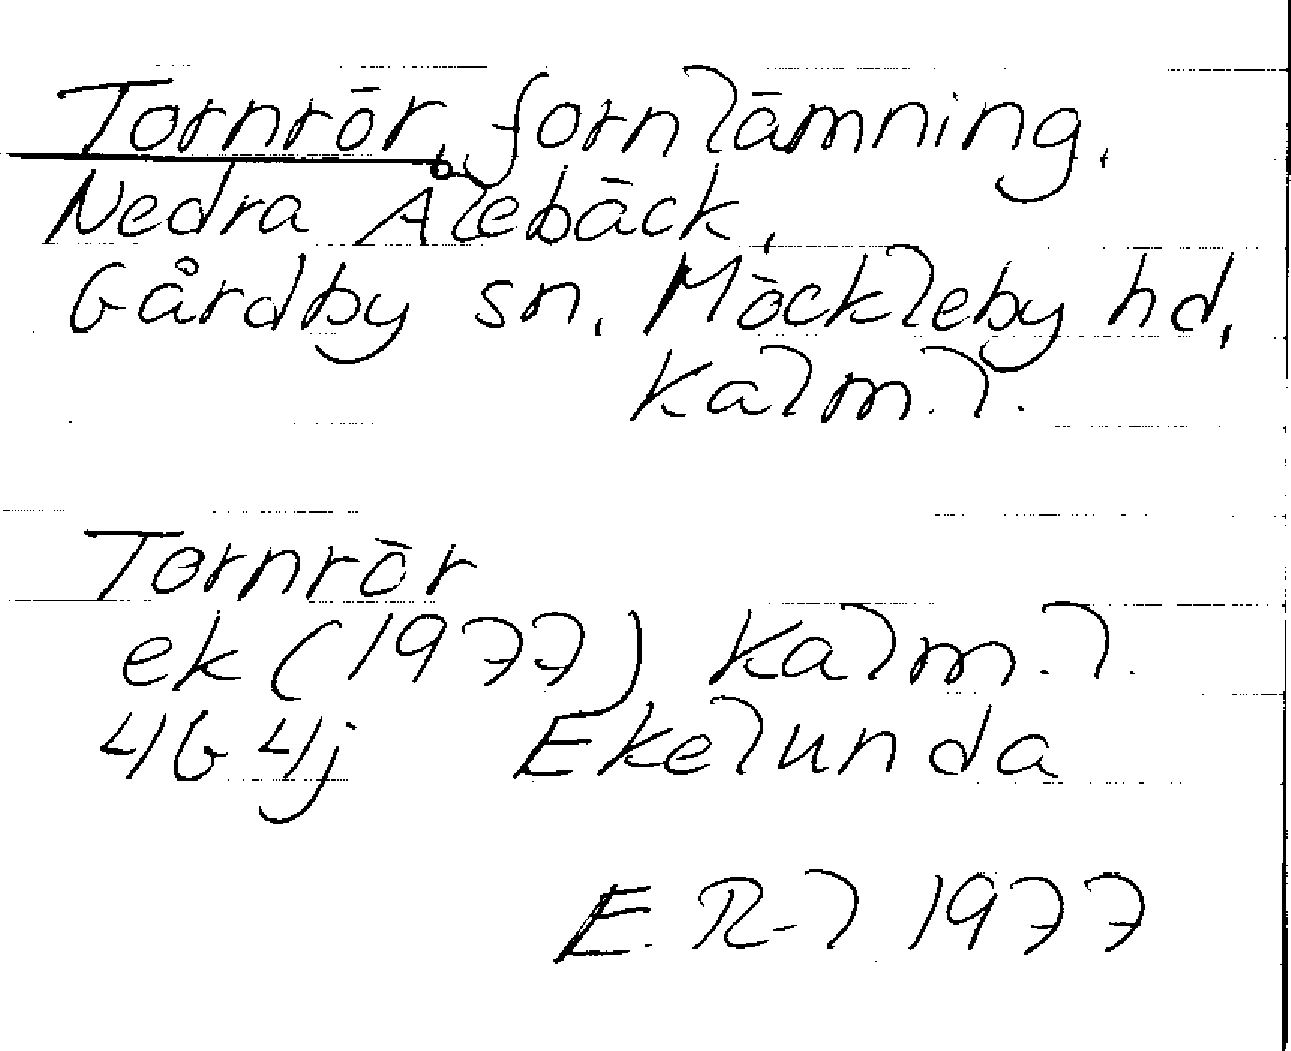 Tornrör, fornlämning,
Nedra Alebäck,
Gårdby sn, Möckleby hd,
Kalm. l.
Tornrör
ek (1977) Kalm. l.
4G 4j Ekelunda
E. R-l 1977